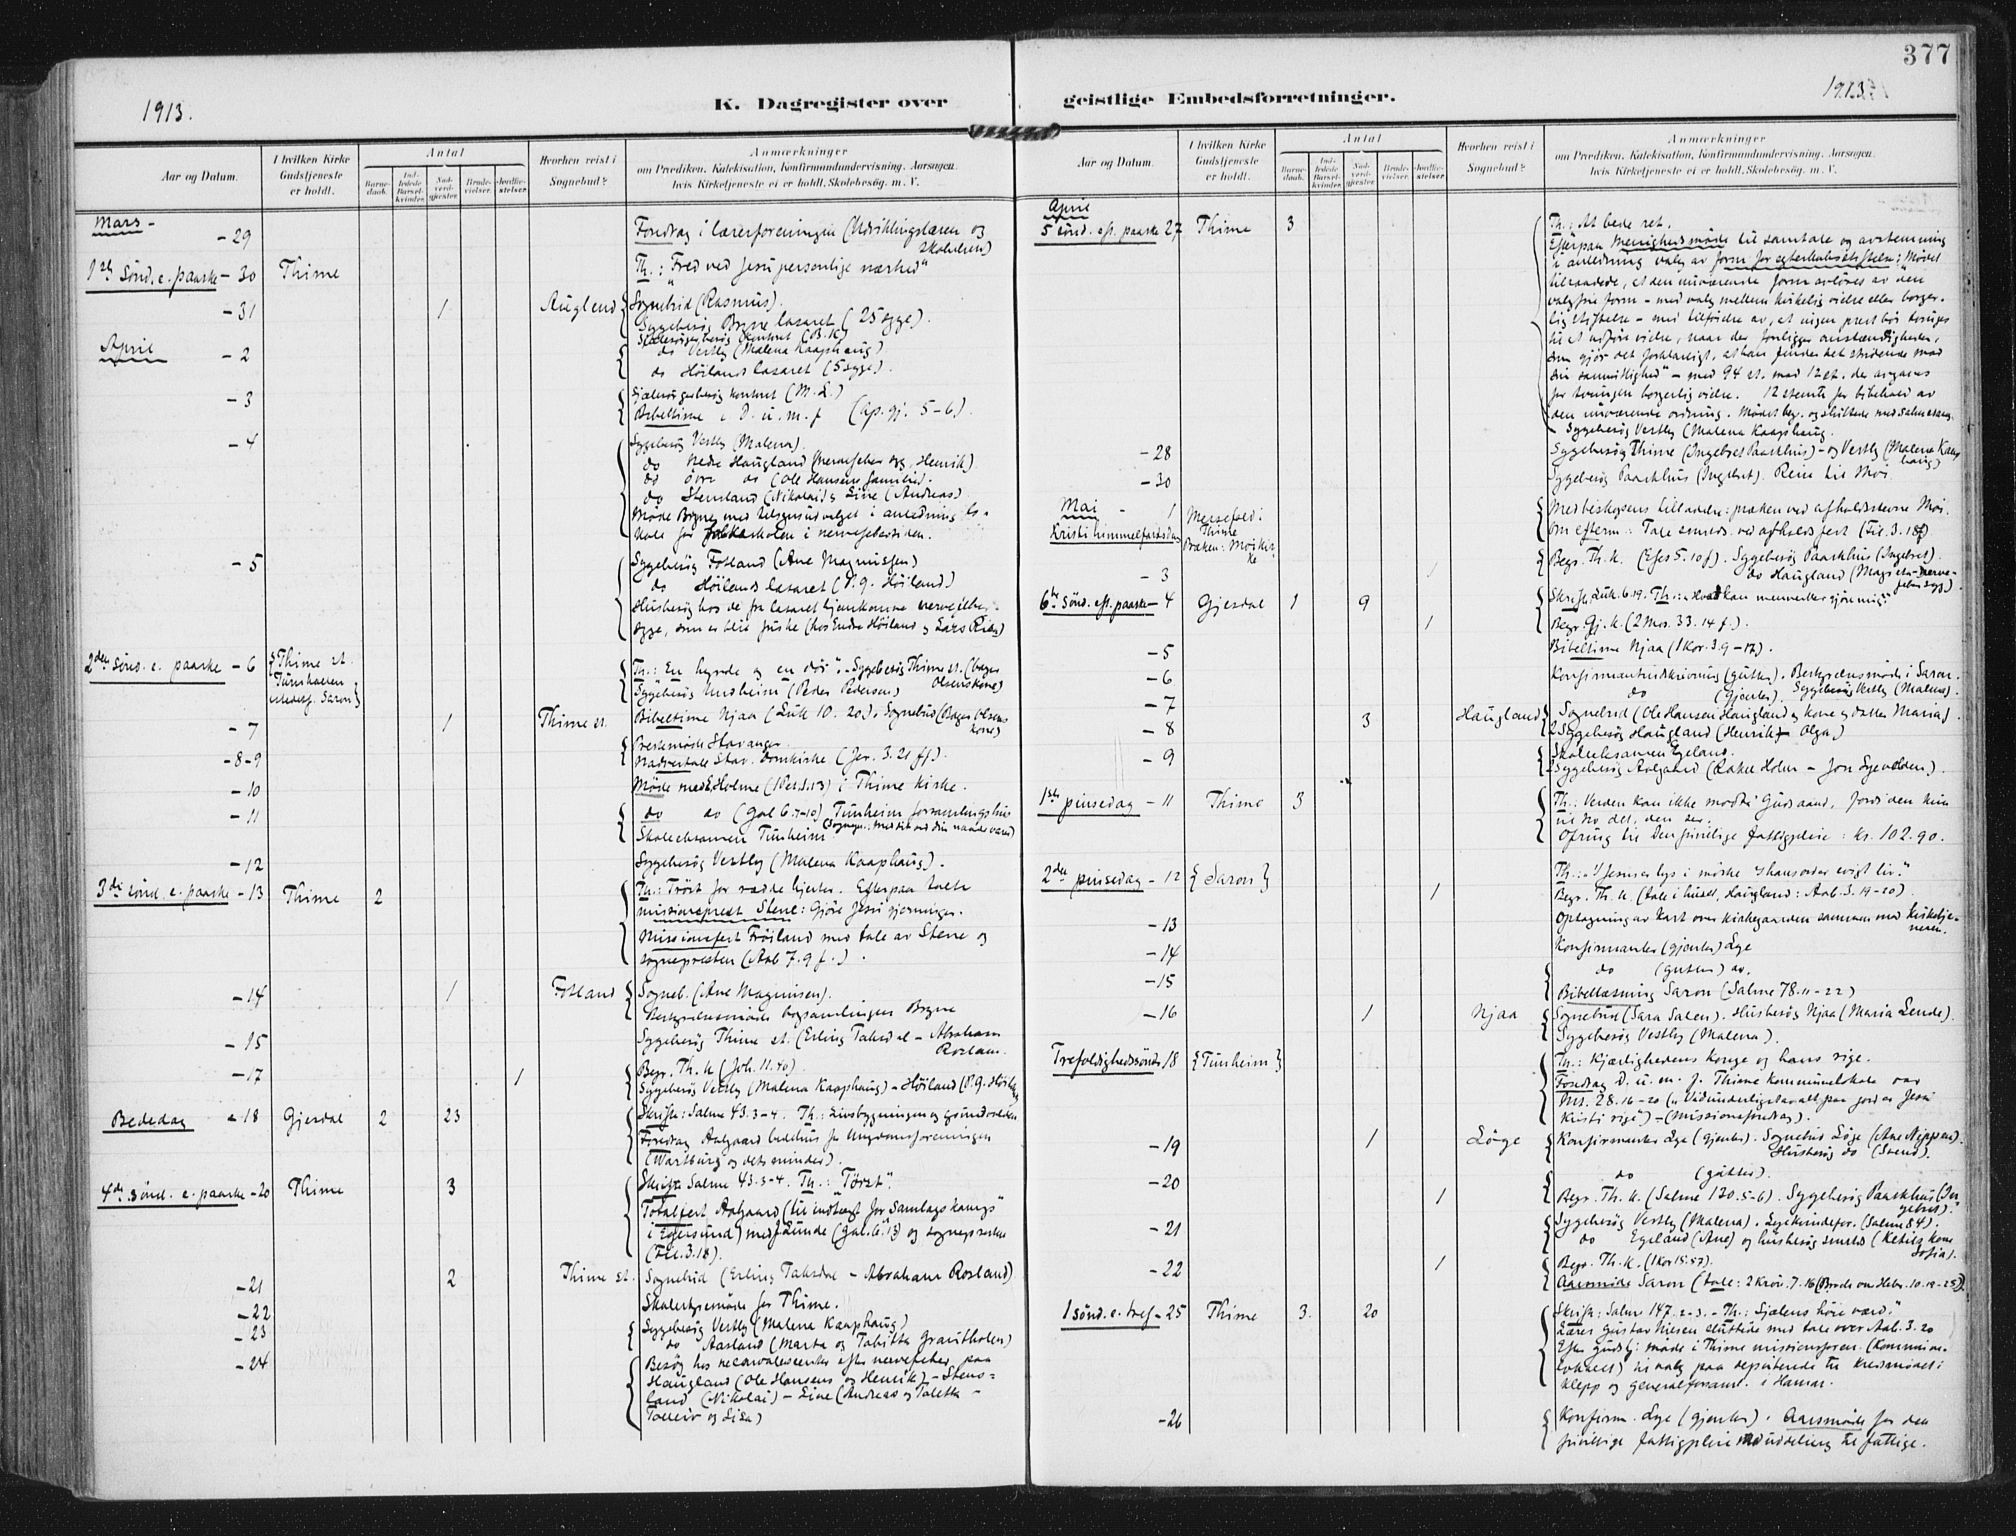 377
1913.
1913.
K. Dagregister over geistlige Embedsforretninger.
Aar og Datum.
I hvilken Kirke Gudstjeneste er holdt.
Antal
Barnedaab.
Indledede Barselkvinder.
Nadverdgjester.
Brudevielser.
Jordfæstelser.
Hvorhen reist i Sognebud?
Anmærkninger
om Prædiken, Katekisation, Konfirmandundervisning, Aarsagen, hvis Kirketjeneste ei er holdt, Skolebesøg m. V.
Mars -
- 29 Foredrag i lærerforeningen (Udviklingslæren og
skolen)
1ste Sønd. e. paaske - 30 Thime Th.: "Fred ved Jesu personlige nærhed"
- 31 1 Auglend Sognebud (Rasmus).
Sygebesøg Bryne lasaret (25 syge).
April - 2
do Vestly (Malena Kaaphaug)
do Høilands lasaret (5 syge).
- 3 Sjælesørgerbesøg kontoret (M. L.)
Bibeltime i D. u. m. f (Ap. gj. 5-6).
- 4 Sygebesøg Vestly (Malena).
do nedre Haugland (nervefeber syg, Henrik)
do øvre do (Ole Hansens familie).
do Stensland (Nikolai) & Line (Andreas)
Møde Bryne med tilsynsudvalget i anledning
folkeskolen i nervefebertiden.
- 5 Sygebesøg Fotland (Ane Magnussen)
do Høilands lasaret (P. G. Høiland)
Husbesøg hos de fra lasaret hjemkomne nervefeber-
syge, som er blit friske (hos Endre Høiland og Lars Ries)
2den sønd. e. paaske - 6 Thime st.
Tunheim
Saron
Th.: En hyrde og en dør". Sygebesøg Thime st. (bager
Olsens kone)
Sygebesøg Undheim (Peder Pedersen)
- 7 1 Thime st. Bibeltime Njaa (Luk 10. 20). Sognebud (Bager Olsens
kone)
- 8-9 Prestemøde Stavanger.
Nadvertale Stav. Domkirke (Jer. 3. 21 ff).
- 10 Møde med E. Holme (1 Pet. 1.13) i Thime kirke.
- 11 do do (Gal 6.7-10) Tunheim forsamlingshus
Skoleeksamen Tunheim
- 12 Sygebesøg Vestly (Malena Kaaphaug).
3die sønd. e. paaske - 13 Thime 2 Th.: Trøst for rædde hjerter. Efterpaa talte
missionsprest Stene: Gjøre Jesu gjerninger.
Missionsfest Frøiland med tale av Stene og
sognepresten (Aab 7. 9 f.).
- 14 1 Fotland Sogneb. (Ane Magnusen).
Bestyrelsesmøde bogsamlingen Bryne
- 15 Sygebesøg Thime st. (Erling Taksdal - Abraham
Rosland.
- 17 1 Begr. Th. k (Joh. 11. 40)
Sygebesøg Vestly (Malena Kaaphaug) - Høiland (P. G. Høiland)
Bededag - 18 Gjesdal 2 23 Skrift: Salme 43. 3-4. Th.: Livsbygningen og grundvolden
Foredrag Aalgaard bedehus for Ungdomsforeningen
(Wartburg og dets minder).
4de sønd. e. paaske - 20 Thime 3 Skrift: Salme 43. 3-4. Th.: "Tørst".
Totalfest Aalgaard (til indtægt for Samlagskamp"
i Egersund) med Lunde (Gal. 6. 13) og sognepresten
(Fil. 3. 18).
- 21 2 Thime st. Sognebud (Erling Taksdal - Abraham Rosland)
- 22 Skolestyremøde for Thime.
- 23 Sygebesøg Vestly (Malena Kaaphaug)
do Aasland (Marta og Tabitta Grautholen)
- 24 Besøg hos reconvalescenter efter nervefeber paa
Haugland (Ole Hansens og Henrik) - Stens-
land (Nikolai) - Line (Andreas og Talette -
Tolleiv og Lisa)
Aar og Datum.
I hvilken Kirke Gudstjeneste er holdt.
Antal
Barnedaab.
Indledede Barselkvinder.
Nadverdgjester.
Brudevielser.
Jordfæstelser.
Hvorhen reist i Sognebud?
Anmærkninger
om Prædiken, Katekisation, Konfirmandundervisning, Aarsagen, hvis Kirketjeneste ei er holdt, Skolebesøg m. V.
April
5 sønd. eft. paaske 27 Thime 3 Th.: At bede ret.
Efterpaa Menighedsmøde til samtale og avstemning
i anledning valg av form for egteskabsstiftelse: "Mødet
tilraadede, at den nuværende form avløses av den
valgfrie form - med valg mellem kirkelig vielse eller borger-
lig stiftelse - med tilføielse av, at ingen prest bør tvinges
til at utføre vielse, naar der foreligger omstændigheder,
som gjør det forklarligt, at han finder det stridende mod
sin samvittighed" - med 94 st. mod 12 st. der avgaves
for tvungen borgerlig vielse. 12 stemte for bibehold av
den nuværende ordning. Mødet beg. og sluttede med salmesang.
Sygebesøg Vestly (Malena Kaaphaug.
- 28 Sygebesøg Thime (Ingebret Paarkhus) - og Vestly (Malena Kaap-
haug)
- 30 Sygebesøg Paarkhus (Ingebret). Reise til Moi.
Mai - 1
Kristi himmelfartsdag
Messefald i
Thime
Præken: Moi kir-
ke
Med biskopens tilladelse: præken ved afholdsstevne Moi.
Om efterm: Tale sammesteds ved afholdsfest (Fil. 3. 18f)
- 3 1 Begr. Th. k. (Efes 5. 10 f). Sygebesøg Paarkhus (Ingebret).
do Haugland (Magreta - nerve-
feber syg).
6te sønd. eft. paaske - 4 Gjesdal 1 9 Skrift: Luk. 6. 19. Th.: "Hvad kan mennesker gjøre mig".
1 Begr. Gj. k. (2 Mos. 33. 14 f.).
- 5 Bibeltime Njaa (1 Kor. 3. 9-17).
- 6 Konfirmantindskrivning (gutter). Bestyrelsesmøde i Saron.
- 7 do (gjenter). Sygebesøg Vestly (Malena).
- 8 3 Haugland Sognebud (Ole Hansen Haugland og kone og datter Maria).
2 Sygebesøg Haugland (Henrik - Olga)
- 9 Skoleeksamen Egeland.
Sygebesøg Aalgaard (Rakel Holen - Jon Syevolden).
1ste pinsedag - 11 Thime 3 Th.: Verden kan ikke modta Guds aand, fordi den kun
vil tro det, den ser.
Ofring til Den frivilige fattigpleie: kr. 102.90.
2den pinsedag - 12 {Saron} Th.: "I Jesu er lys i mørke I hans ord er evigt liv".
1 Begr. Th. k (tale i huset, Haugland: Aab. 3. 19-20).
- 13 Optagning av kart over kirkegaarden sammen med kirketje-
neren.
- 14 Konfirmanter (gjenter) Lye
- 15 do (gutter) do.
Bibellæsning Saron (Salme 78. 11-22)
- 16 1 Njaa Sognebud (Sara Salen). Husbesøg Njaa (Maria Lende).
Sygebesøg Vestly (Malena).
Trefoldighedssønd. 18 {Tunheim} Th.: Kjærlighedens konge og hans rige.
Foredrag D. u. m. f. Thime kommunelokale over
Mt. 28. 16-20 ("Vidunderligst av alt paa jord er Jesu
Kristi rige") - (Missionsforedrag).
- 19 1 Løge Konfirmanter Lye (gjenter). Sognebud Løge (Ane Nippen).
Husbesøg do (Svend).
- 20 do (gutter).
1 Begr. Th. k. (Salme 130. 5-6). Sygebesøg Paarkhus (In-
gebret).
- 21 Sygebesøg Vestly (Malena). Lye kvindefor. (Salme 84).
do Egeland (Ane) og husbesøg smsted (Ketils kone
Sofia).
- 22 1 Begr. Th. k. (1 Kor 15. 57).
Aarsmøde Saron (tale: 2 Krøn. 7. 16 (Brode om Hebr. 10. 19-25)).
1 sønd. e. tref - 25 Thime 3. 20 Skrift: Salme 147. 2-3. - Th.: Sjælens høie værd."
Lærer Gustav Niesen sluttede med tale over Aab. 3. 20
Efter gudstj: møde i Thime missionsforen. (kommune-
lokalet) til valg paa deputerede til kredsmødet i
Klepp og generalforsaml. i Hamar.
- 26 Konfirm. Lye (gjenter). Aarsmøde for den
frivillige fattigpleie med uddeling til fattige.